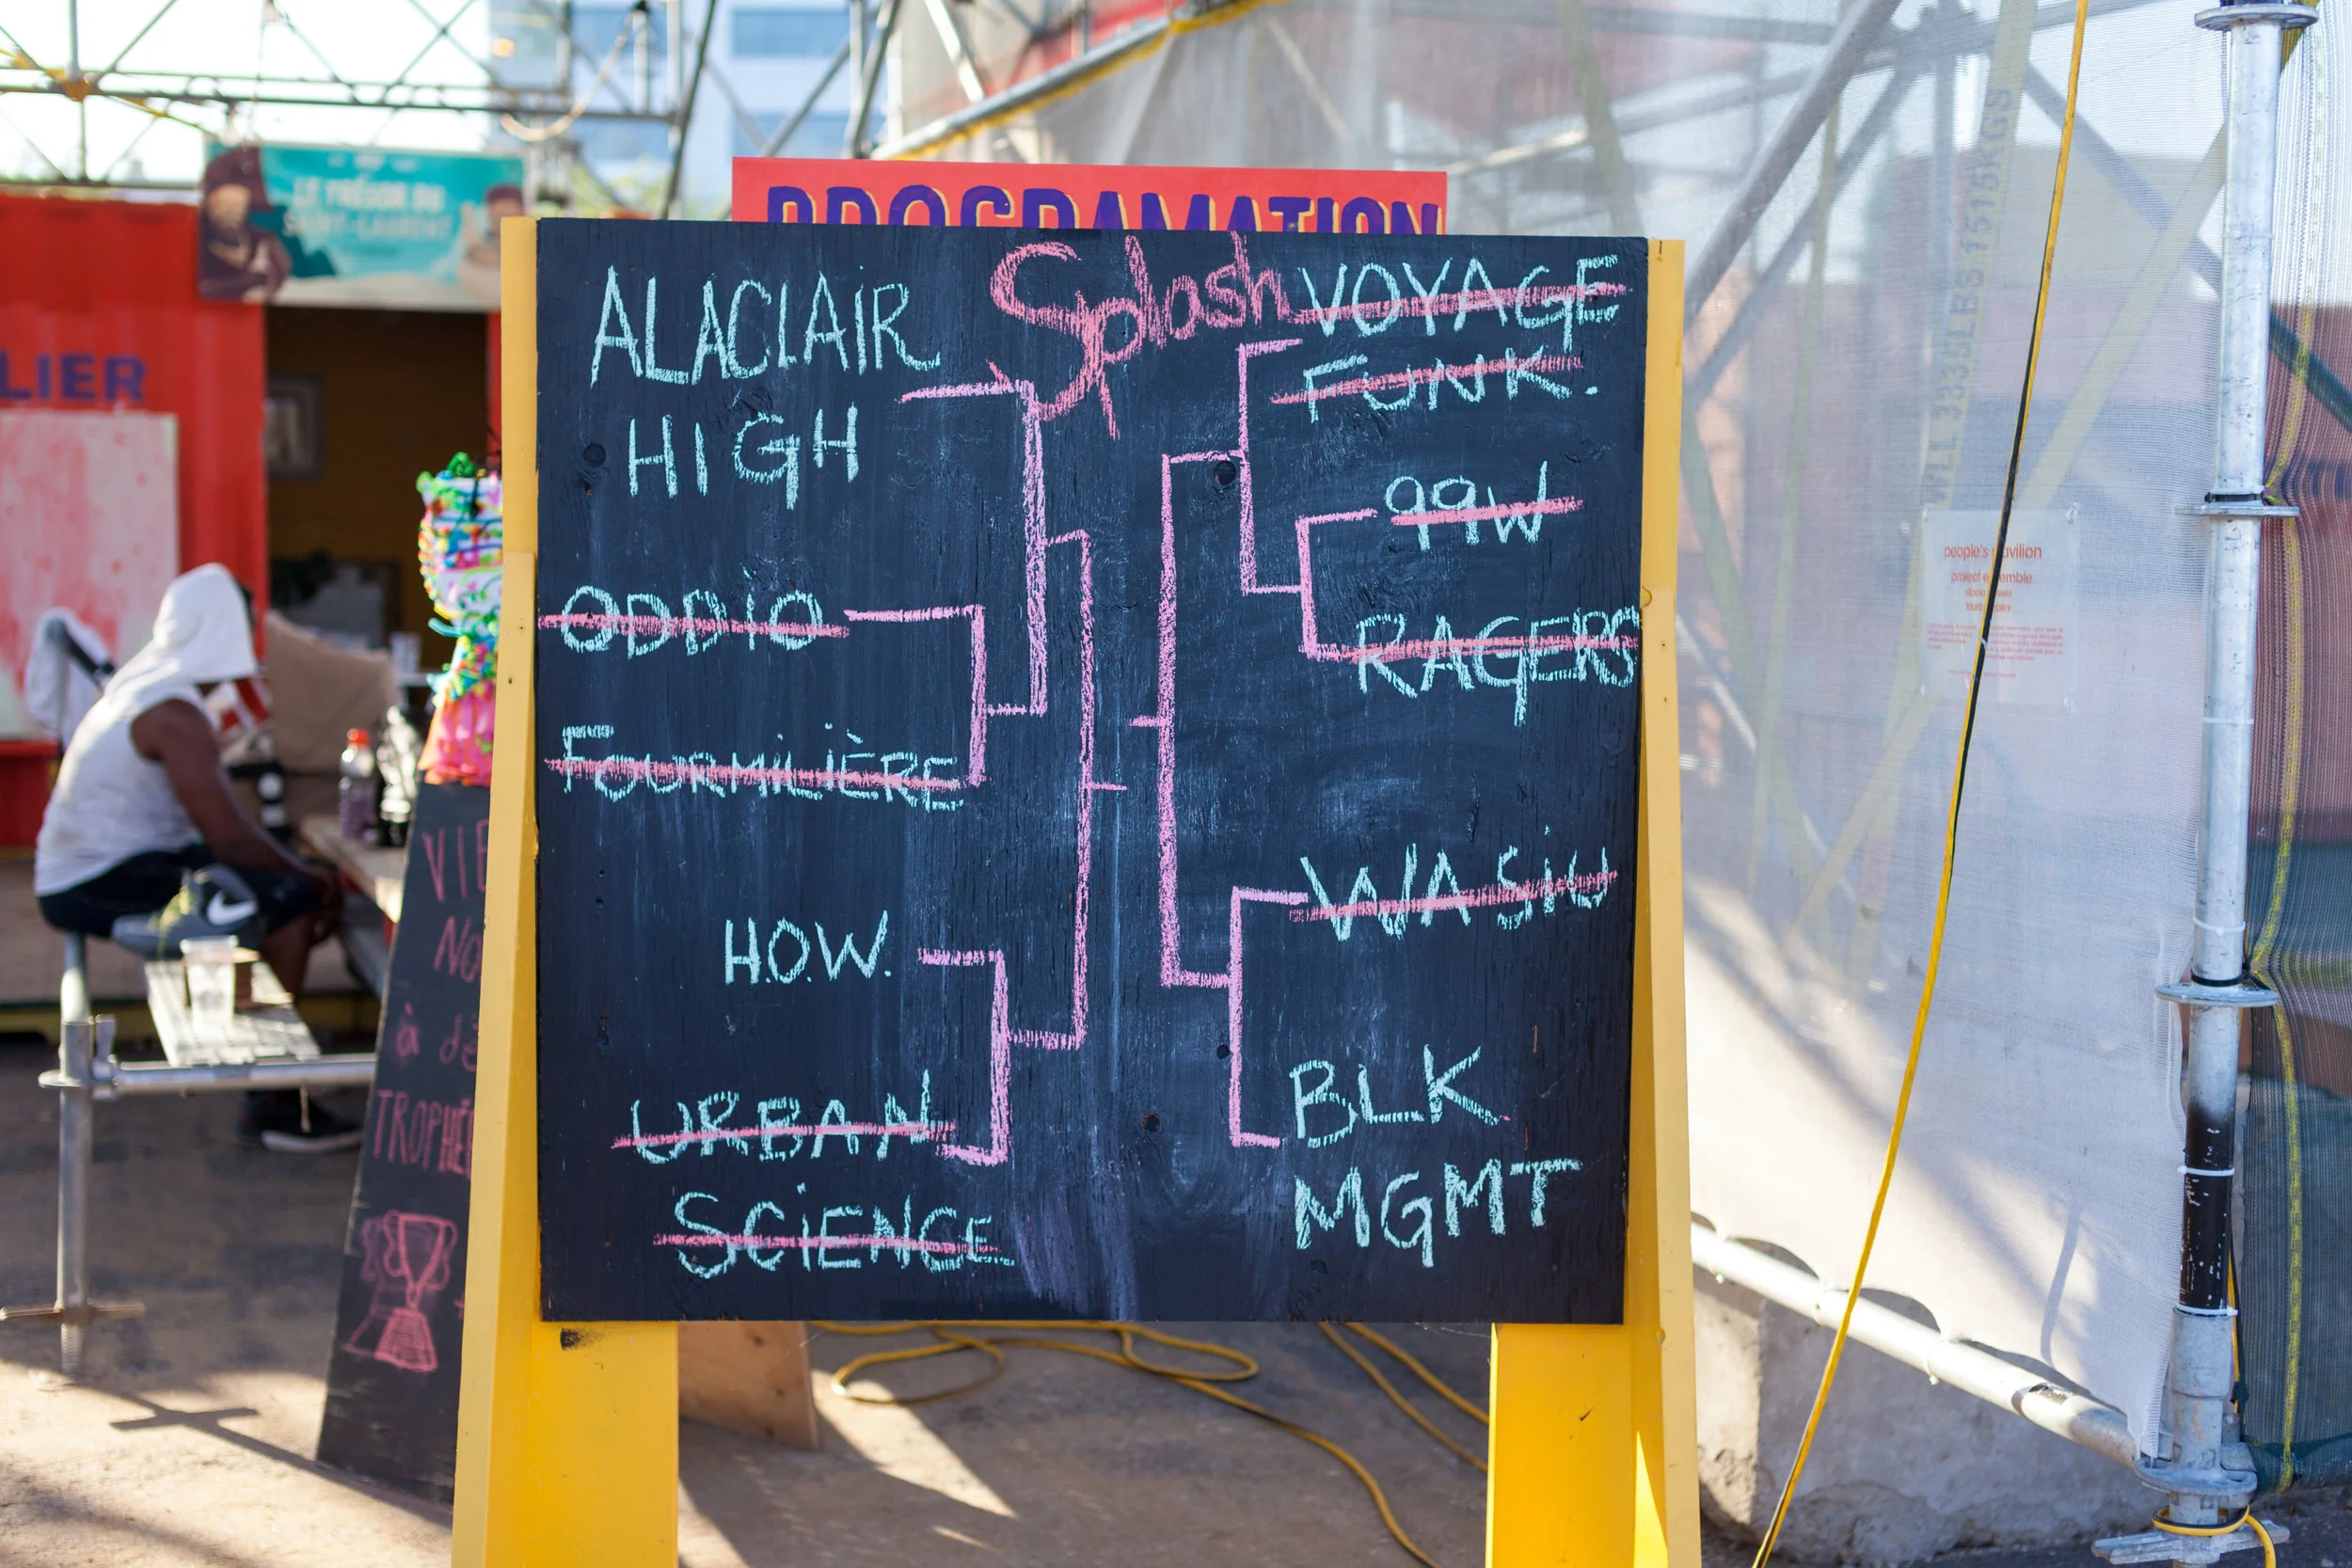 LE TRÉSOR DU
SAINT-LAURENT
PROGRAMATION
LIER
Splash
ALACLAIR
HIGH
ODDIO
FOURMILIÈRE
H.O.W.
URBAN
SCIENCE
VOYAGE
FUNK.
99W
RAGERS
WASIU
BLK
MGMT
VIE
NO
à dé
TROPHÉE
people's pavilion
project ensemble
WLL 3335LBS 1515KGS